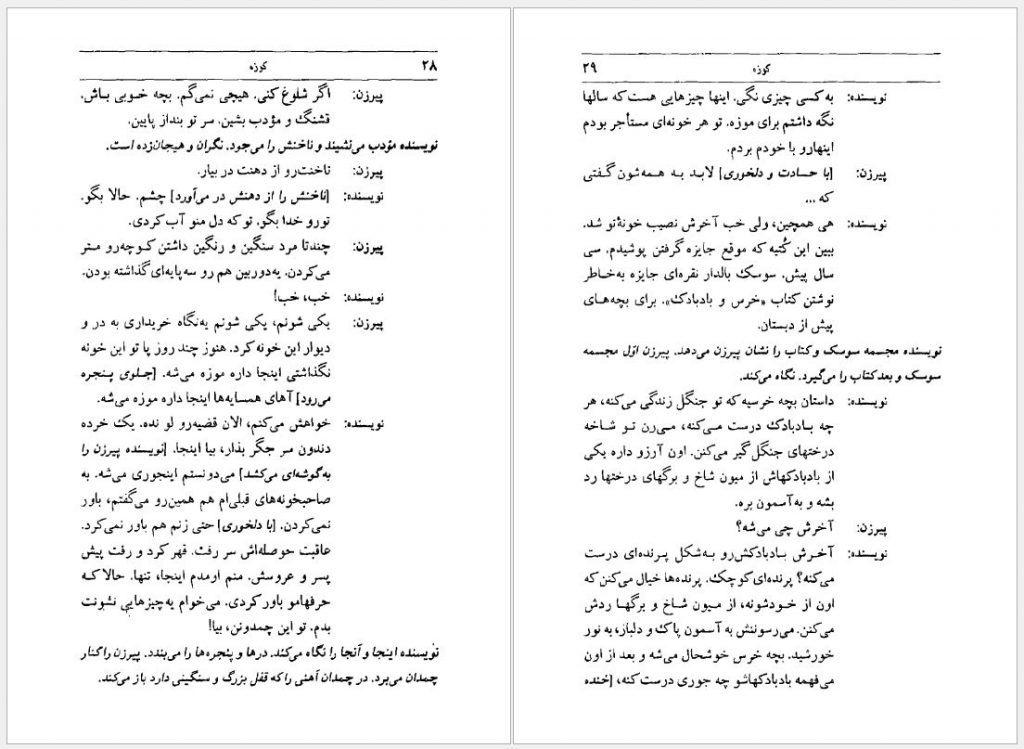 ۲۸ کوزه
پیرزن: اگر شلوغ کنی. هیچی نمی‌گم. بچه خوبی باش،
قشنگ و مؤدب بشین. سر تو بنداز پایین.
نویسنده مؤدب می‌نشیند و ناخنش را می‌جود. نگران و هیجان‌زده است.
پیرزن: ناخنت‌رو از دهنت در بیار.
نویسنده: [ناخنش را از دهنش در می‌آورد] چشم. حالا بگو.
تورو خدا بگو. تو که دل منو آب کردی.
پیرزن: چندتا مرد سنگین و رنگین داشتن کوچه‌رو متر
می‌کردن. یه‌دوربین هم رو سه‌پایه‌ای گذاشته بودن.
نویسنده: خب، خب!
پیرزن: یکی شونم، یکی شونم یه‌نگاه خریداری به در و
دیوار این خونه کرد. هنوز چند روز پا تو این خونه
نگذاشتی اینجا داره موزه می‌شه. [جلوی پنجره
می‌رود] آهای همسایه‌ها اینجا داره موزه می‌شه.
نویسنده: خواهش می‌کنم، الان قضیه‌رو لو نده. یک خرده
دندون سر جگر بذار، بیا اینجا. [نویسنده پیرزن را
به‌گوشه‌ای می‌کشد] می‌دونستم اینجوری می‌شه. به
صاحبخونه‌های قبلی‌ام هم همین‌رو می‌گفتم، باور
نمی‌کردن. [با دلخوری] حتی زنم هم باور نمی‌کرد.
عاقبت حوصله‌اش سر رفت. قهر کرد و رفت پیش
پسر و عروسش. منم اومدم اینجا، تنها. حالا که
حرفهامو باور کردی. می‌خوام یه‌چیزهایی نشونت
بدم. تو این چمدونن، بیا!
نویسنده اینجا و آنجا را نگاه می‌کند. درها و پنجره‌ها را می‌بندد. پیرزن را کنار
چمدان می‌برد. در چمدان آهنی را که قفل بزرگ و سنگینی دارد باز می‌کند.
کوزه ۲۹
نویسنده: به کسی چیزی نگی. اینها چیزهایی هست که سالها
نگه داشتم برای موزه. تو هر خونه‌ای مستأجر بودم
اینهارو با خودم بردم.
پیرزن: [با حسادت و دلخوری] لابد به همه‌شون گفتی
که ...
نویسنده: هی همچین، ولی خب آخرش نصیب خونهٔ‌تو شد.
ببین این کُتیه که موقع جایزه گرفتن پوشیدم. سی
سال پیش. سوسک بالدار نقره‌ای جایزه به‌خاطر
نوشتن کتاب «خرس و بادبادک». برای بچه‌های
پیش از دبستان.
نویسنده مجسمه سوسک و کتاب را نشان پیرزن می‌دهد. پیرزن اوّل مجسمه
سوسک و بعد کتاب را می‌گیرد. نگاه می‌کند.
نویسنده: داستان بچه خرسیه که تو جنگل زندگی می‌کنه، هر
چه بادبادک درست می‌کنه، می‌رن تو شاخه
درختهای جنگل گیر می‌کنن. اون آرزو داره یکی
از بادبادکهاش از میون شاخ و برگهای درختها رد
بشه و به‌آسمون بره.
پیرزن: آخرش چی می‌شه؟
نویسنده: آخرش بادبادکش‌رو به‌شکل پرنده‌ای درست
می‌کنه؟ پرنده‌ای کوچک. پرنده‌ها خیال می‌کنن که
اون از خودشونه، از میون شاخ و برگها ردش
می‌کنن. می‌رسوننش به آسمون پاک و دلباز، به نور
خورشید. بچه خرس خوشحال می‌شه و بعد از اون
می‌فهمه بادبادکهاشو چه جوری درست کنه، [خنده